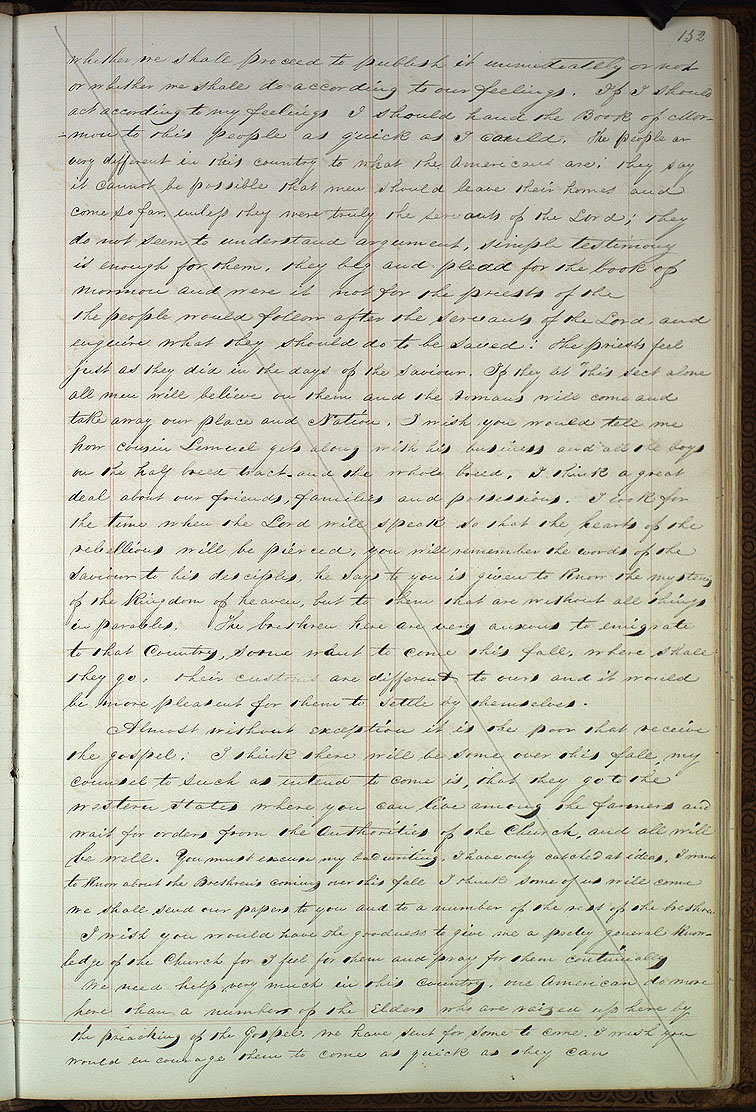 152
whether we shall proceed to publish it immediately or not
or whether we shall do according to our feelings. If I should
act according to my feelings I should hand the Book of Mor-
-mon to this people as quick as I could. The People ar
very different in this country to what the Americans are; they say
it cannot be possible that men should leave their homes and
come so far, unless they were truly the servants of the Lord; they
do not seem to understand argument, simple testimony
is enough for them, they beg and plead for the book of
mormon and were it not for the priests of the
the people would follow after the servants of the Lord and
enquire what they should do to be saved: the priests feel
just as they did in the days of the Saviour. If they let "this sect alone
all men will believe on them and the romans will come and
take away our place and Nation. I wish you would tell me
how cousin Lemuel gets along with his business and all the boys
on the half breed tract and the whole breed. I think a great
deal about our friends, families and possessions. I look for
the time when the Lord will speak so that the hearts of the
rebellious will be pierced. you will remember the words of the
Saviour to his desciples, he says to you is given to know the mysterys
of the kingdom of heaven, but to them that are without all things
in parables. The brethren here are very anxious to emigrate
to that Country, some want to come this fall, where shall
they go, their customs are different to ours and it would
be more pleasent for them to settle by themselves.
Almost without exception it is the poor that receive
the gospel. I think there will be some over this fall, my
councel to such as intend to come is, that they go to the
western States where you can live among the farmers and
wait for orders from the authorities of the Church, and all will
be well. You must excuse my bad writing, I have only catched at ideas, I want
to know about the Brethren's coming over this fall I think some of us will come
we shall send our papers to you and to a number of the rest of the brethren
I wish you would have the goodness to give me a prety general know-
ledge of the Church for I feel for them and pray for them continually
We need help very much in this country, one American do more
here than a number of the Elders who are raized up here by
the preaching of the Gospel, we have sent for some to come, I wish you
would encourage them to come as quick as they can